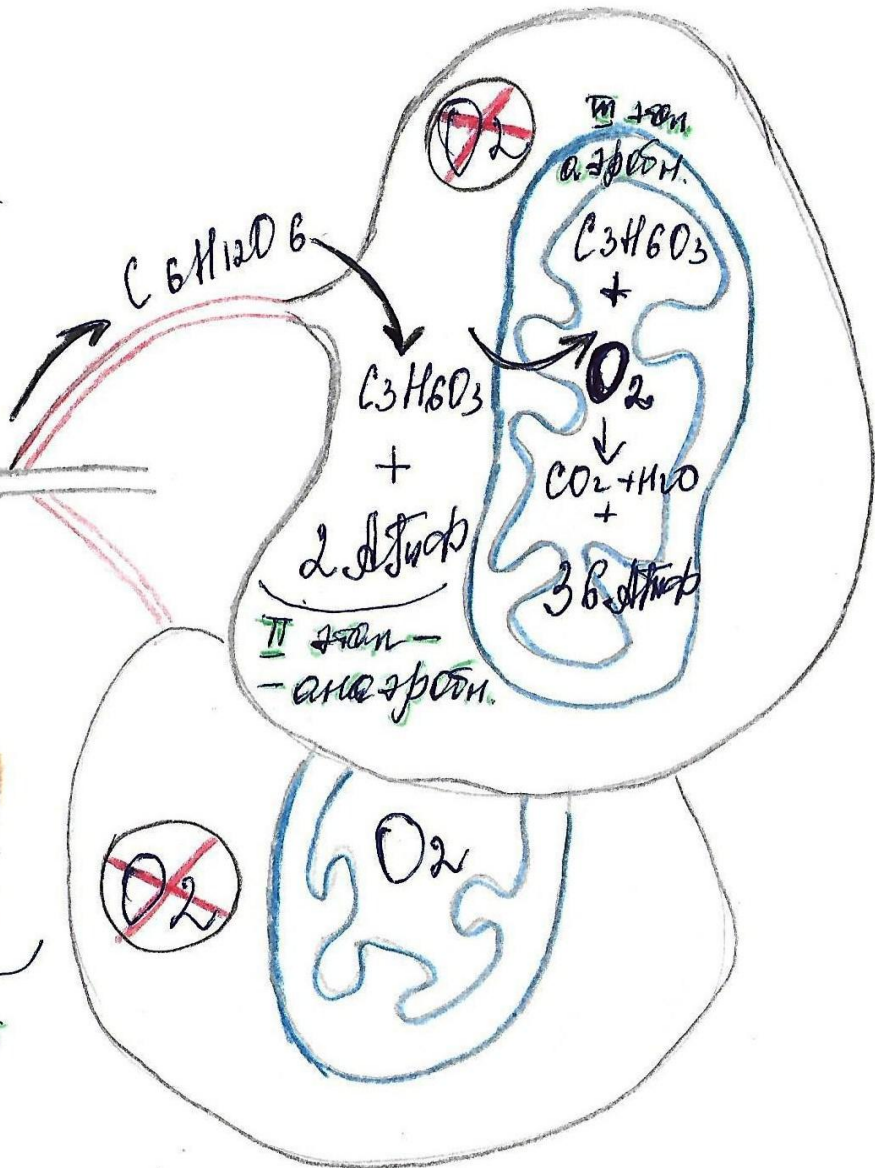 O2
III этап
аэробн.
C6H12O6
C3H6O3
+
O2
↓
CO2+H2O
+
36 АТФ
C3H6O3
+
2 АТФ
II этап-
-анаэробн.
O2
O2